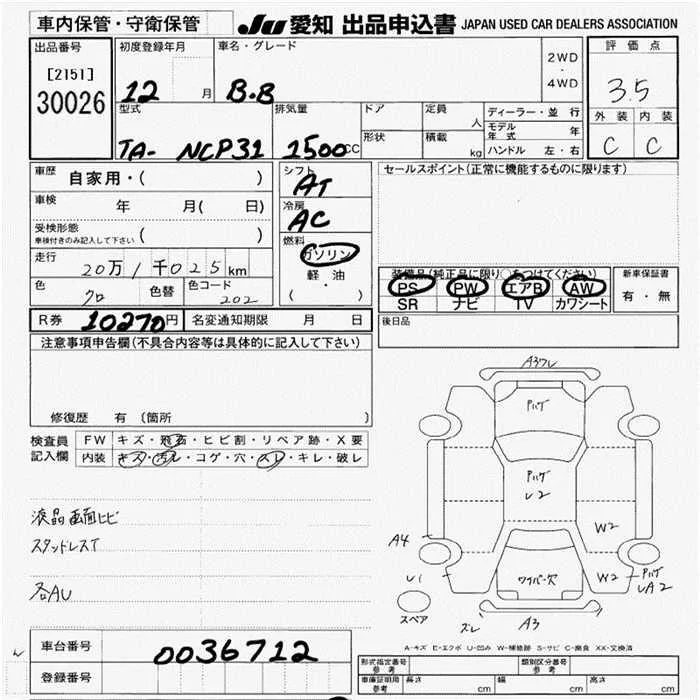 車内保管・守衛保管
JU 愛知 出品申込書 JAPAN USED CAR DEALERS ASSOCIATION
出品番号
[2151]
30026
初度登録年月
12 月
車名・グレード
B.B
2WD
・
4WD
評価点
3.5
外装 内装
C C
型式
TA- NCP31
排気量
1500cc
ドア
形状
定員
人
積載
kg
ディーラー・並行
モデル年式 年
ハンドル 左・右
車歴
自家用・( )
車検
年 月( 日)
受検形態
車検付きのみ記入して下さい ( )
走行
20万1千025km
色
クロ
色替
色コード
202
シフト
AT
冷房
AC
燃料
ガソリン
軽油
( ・ )
セールスポイント(正常に機能するものに限ります)
装備品(純正品に限り○をつけてください)
PS PW エアB AW
SR ナビ TV カワシート
新車保証書
有・無
後日品
R券 10270円
名変通知期限 月 日
注意事項申告欄(不具合内容等は具体的に記入して下さい)
修復歴 有 〔箇所 〕
検査員記入欄
FW キズ・飛石・ヒビ割・リペア跡・X要
内装 キズ・汚レ・コゲ・穴・スレ・キレ・破レ
液晶画面ヒビ
スタッドレスT
各AU
A3ワレ
ハゲ
ハゲ
U2
W2
A4
U1
W2
ハゲ
UA2
ワイパー欠
スペア
ズレ
A3
A-キズ E-エクボ U-凹み W-補修跡 S-サビ C-腐食 XX-交換済
車台番号
0036712
登録番号
形式指定番号
参考
類別区分番号
参考
車庫証明用
参考
長さ cm
幅 cm
高さ cm